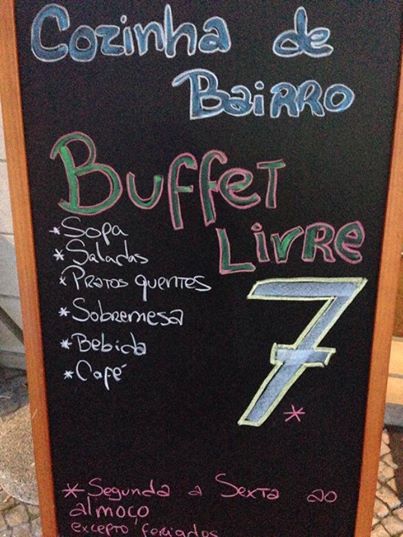 Cozinha de
BAiRRO
BuffeT
LivRe
* Sopa
* Saladas
* Pratos quentes
* Sobremesa
* Bebida
* Café
7
*
* Segunda a Sexta ao
almoço
excepto feriados